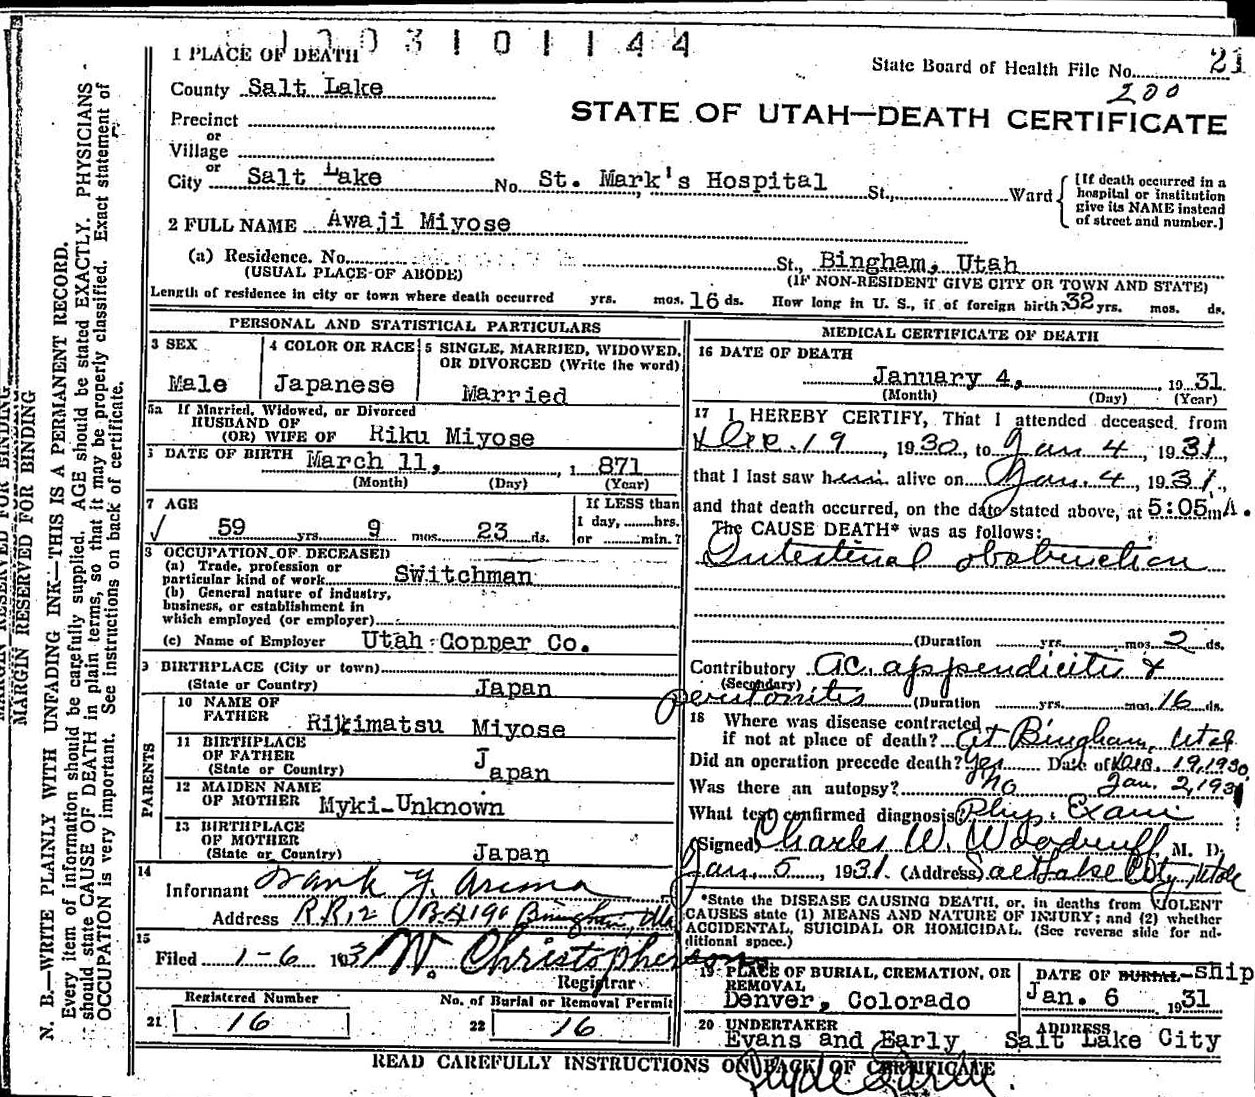 1 7 0 3 1 0 1 1 4 4
1 PLACE OF DEATH
State Board of Health File No. 21
200
County Salt Lake
STATE OF UTAH—DEATH CERTIFICATE
Precinct
or
Village
or
City Salt Lake No. St. Mark's Hospital St., Ward
[If death occurred in a hospital or institution give its NAME instead of street and number.]
2 FULL NAME Awaji Miyose
(a) Residence. No. St., Bingham, Utah
(USUAL PLACE OF ABODE) (IF NON-RESIDENT GIVE CITY OR TOWN AND STATE)
Length of residence in city or town where death occurred yrs. mos. 16 ds. How long in U. S., if of foreign birth? 32 yrs. mos. ds.
PERSONAL AND STATISTICAL PARTICULARS
3 SEX
Male
4 COLOR OR RACE
Japanese
5 SINGLE, MARRIED, WIDOWED, OR DIVORCED (Write the word)
Married
5a If Married, Widowed, or Divorced
HUSBAND OF
(OR) WIFE OF Riku Miyose
6 DATE OF BIRTH March 11, , 1 871
(Month) (Day) (Year)
7 AGE
59 yrs. 9 mos. 23 ds.
If LESS than
1 day, hrs.
or min.?
8 OCCUPATION OF DECEASED
(a) Trade, profession or
particular kind of work Switchman
(b) General nature of industry,
business, or establishment in
which employed (or employer)
(c) Name of Employer Utah Copper Co.
9 BIRTHPLACE (City or town)
(State or Country) Japan
PARENTS
10 NAME OF
FATHER Rikimatsu Miyose
11 BIRTHPLACE
OF FATHER
(State or Country) Japan
12 MAIDEN NAME
OF MOTHER Myki-Unknown
13 BIRTHPLACE
OF MOTHER
(State or Country) Japan
14
Informant Frank Y. Arima
Address R.R. 12 B 4190 Bingham
15
Filed 1-6 1931 W. Christopherson
Registrar
Registered Number
21 16
No. of Burial or Removal Permit
22 16
MEDICAL CERTIFICATE OF DEATH
16 DATE OF DEATH
January 4, 1931
(Month) (Day) (Year)
17 I HEREBY CERTIFY, That I attended deceased from
Dec. 19, 1930, to Jan 4, 1931,
that I last saw him alive on Jan. 4, 1931,
and that death occurred, on the date stated above, at 5:05 m A.
The CAUSE DEATH* was as follows:
Intestinal obstruction
(Duration yrs. mos. 2 ds.
Contributory Ac. appendicitis &
(Secondary)
peritonitis (Duration yrs. mos. 16 ds.
18 Where was disease contracted
if not at place of death? At Bingham, Utah
Did an operation precede death? Yes Date of Dec. 19, 1930
Was there an autopsy? No Jan. 2, 1931
What test confirmed diagnosis? Phys. Exam
(Signed) Charles W. Woodruff, M. D.
Jan. 5, 1931. (Address) Salt Lake City, Utah
*State the DISEASE CAUSING DEATH, or, in deaths from VIOLENT
CAUSES state (1) MEANS AND NATURE OF INJURY; and (2) whether
ACCIDENTAL, SUICIDAL OR HOMICIDAL. (See reverse side for additional space.)
19 PLACE OF BURIAL, CREMATION, OR
REMOVAL
Denver, Colorado
DATE OF BURIAL-ship
Jan. 6 1931
20 UNDERTAKER
Evans and Early
ADDRESS
Salt Lake City
READ CAREFULLY INSTRUCTIONS ON BACK OF CERTIFICATE
MARGIN RESERVED FOR BINDING
MARGIN RESERVED FOR BINDING
N. B.—WRITE PLAINLY WITH UNFADING INK—THIS IS A PERMANENT RECORD.
Every item of information should be carefully supplied. AGE should be stated EXACTLY. PHYSICIANS
should state CAUSE OF DEATH in plain terms, so that it may be properly classified. Exact statement of
OCCUPATION is very important. See instructions on back of certificate.